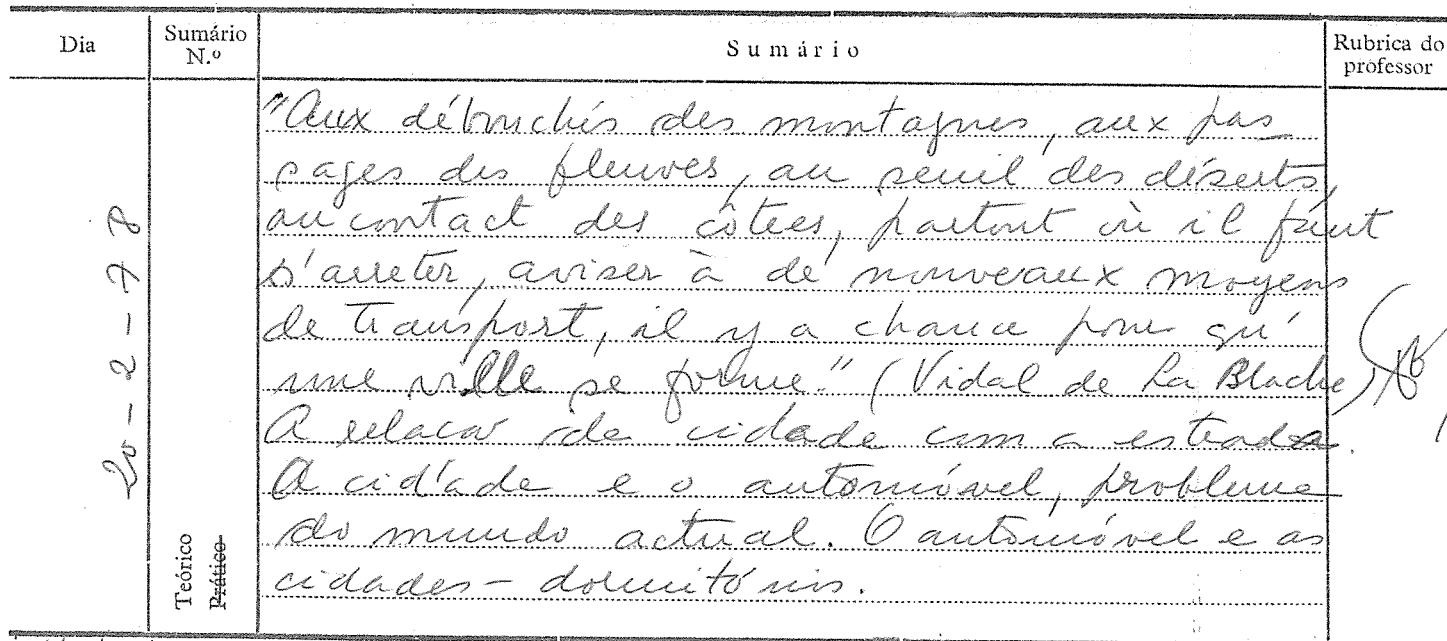 Dia
Sumário N.º
Sumário
Rubrica do professor
20-2-78
"Aux débouchés des montagnes, aux pas
sages des fleuves, au seuil des déserts,
au contact des côtees, partout où il faut
s'arreter, aviser à de nouveaux moyens
de transport, il y a chance pour qu'
une ville se forme." (Vidal de La Blache)
A relacao da cidade com a estrada.
A cidade e o automóvel, problema
do mundo actual. O automóvel e as
cidades-dormitórios.
Teórico
Prático